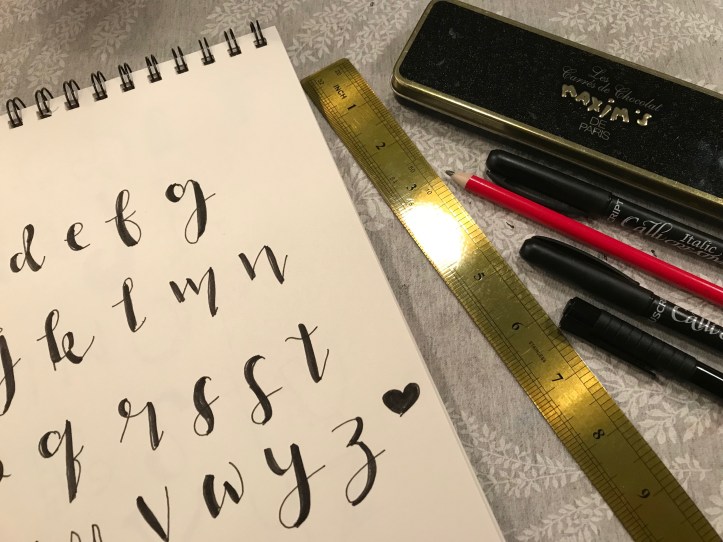 d e f g
j k l m n
q r s s t
v w y z
INCH 1 2 3 5 6 7 8 9
Les
Carrés de Chocolat
MAXIM'S
DE
PARIS
Italic